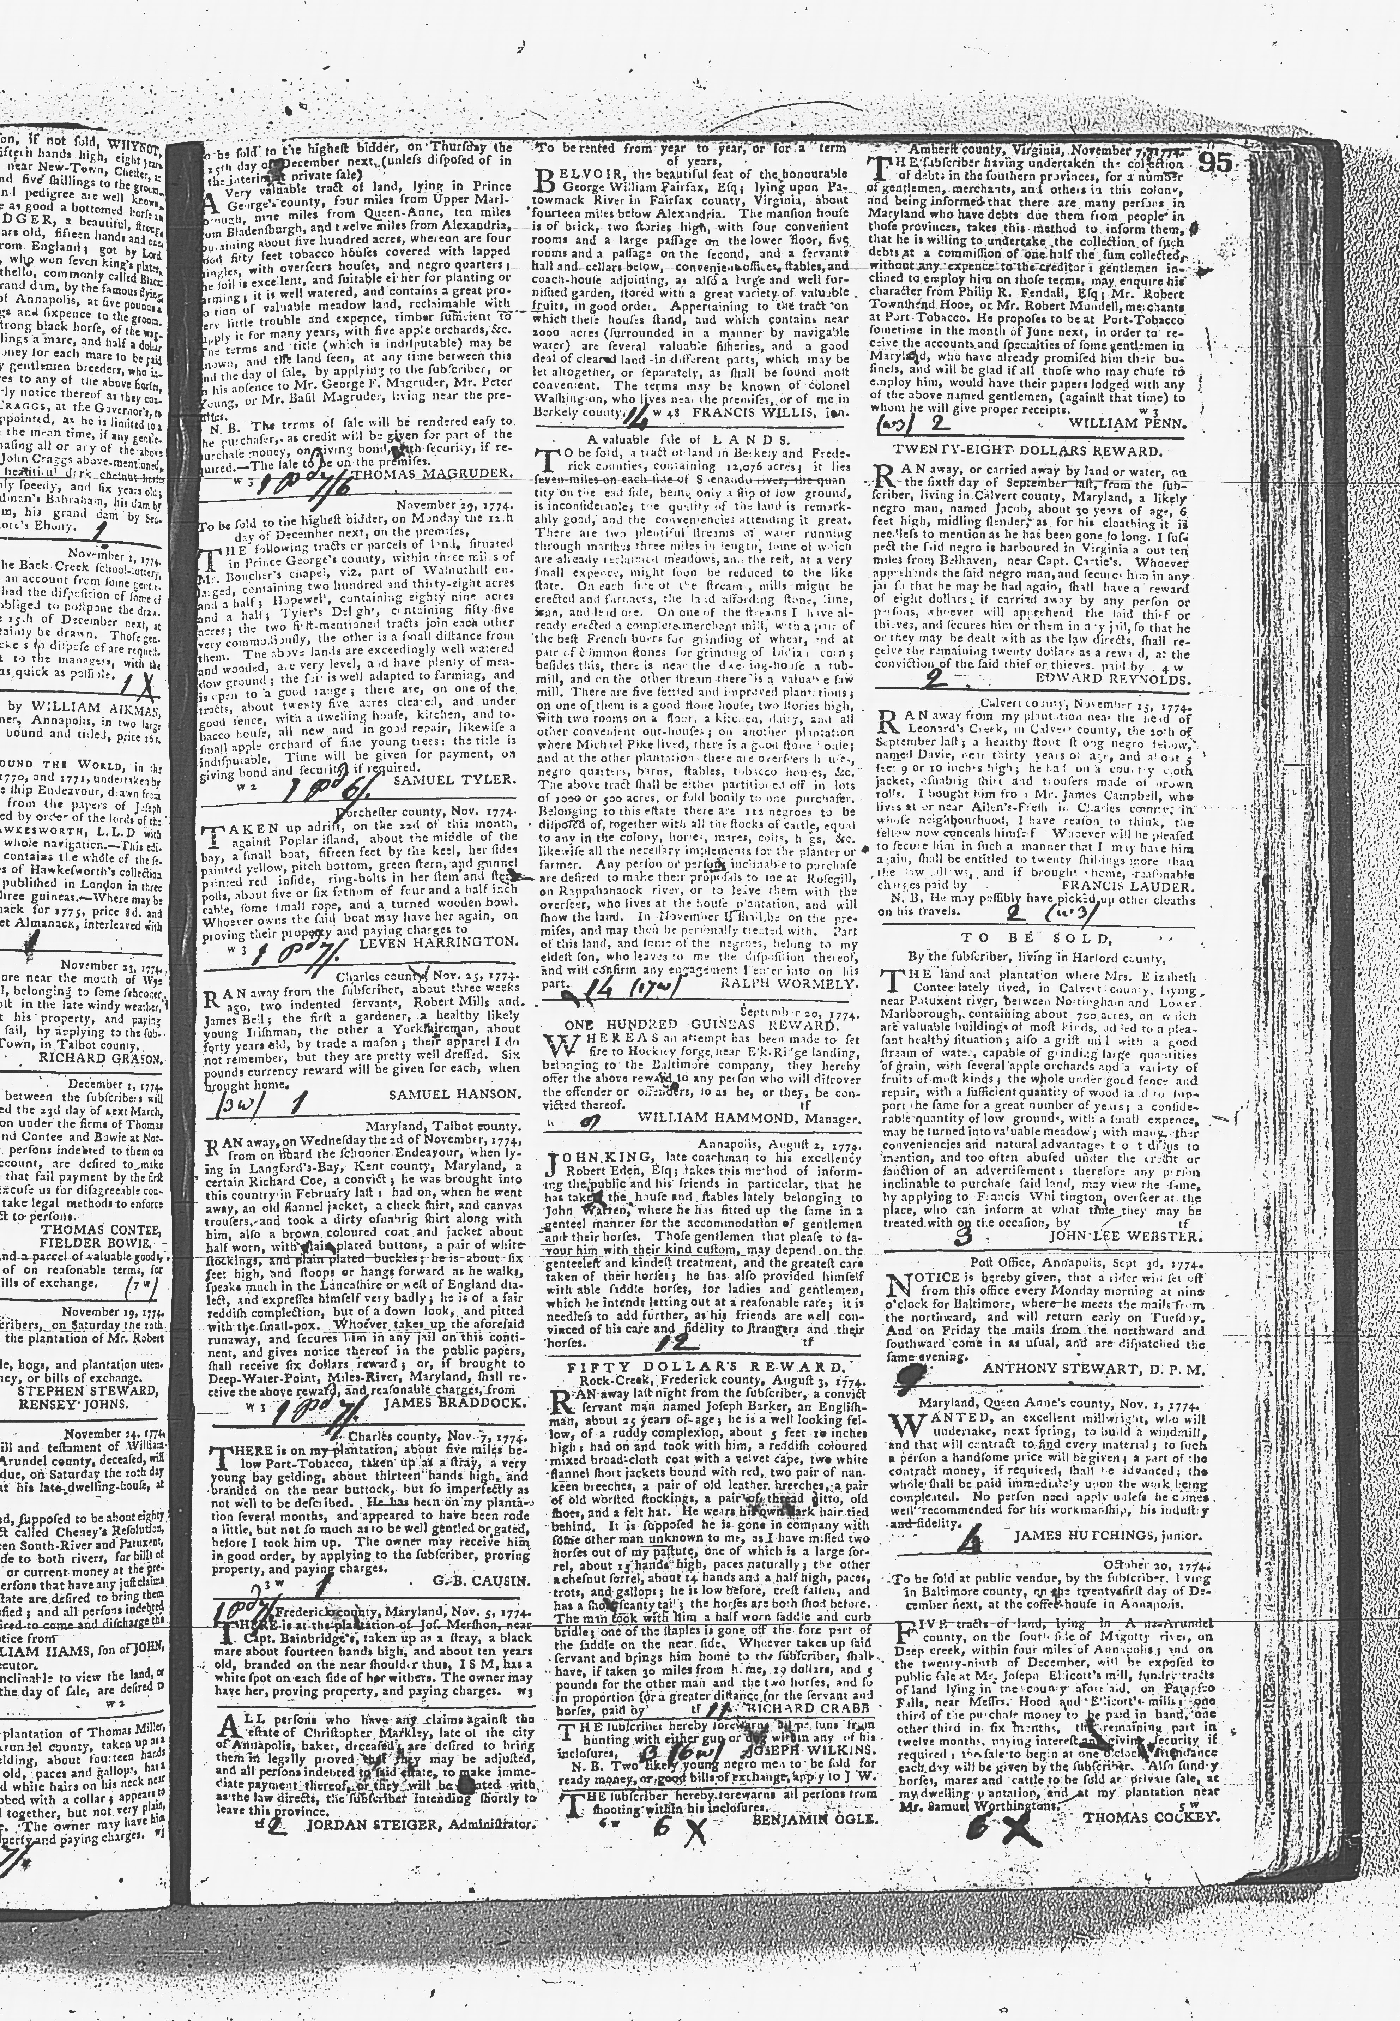 on, if not ſold, WHYNOT,
fifteen hands high, eight years
near New-Town, Cheſter,
and five ſhillings to the groom.
pedigree are well known,
as good a bottomed horſe as
DGER, a beautiful,
ars old, fifteen hands and
rom England; got by Lord
who won ſeven king's plates,
thello, commonly called Black
rand dam, by the famous flying
of Annapolis, at five pounds
gs and ſixpence to the groom.
trong black horſe, of the wag-
lings a mare, and half a dollar
oney for each mare to be paid
y gentlemen breeders, who
res to any of the above horſes,
ly notice thereof as they
CRAGGS, at the Governor's,
ppointed, as he is limited to a
the mean time, if any gentle-
haſing all or any of the above
John Craggs above-mentioned,
beautiful dark cheſnut horſe
ly ſpeedy, and ſix years old;
dmen's Babraham, his dam by
m, his grand dam by
ore's Ebony. 1
November 1, 1774.
he Back Creek ſchool-lottery
an account from ſome gent.
had the diſpoſition of ſome of
obliged to poſtpone the dra-
15th of December next, at
tainly be drawn. Thoſe gen.
to the managers, with the
as quick as poſſible. 1 X
by WILLIAM AIKMAN,
ner, Annapolis, in two large
bound and titled, price
OUND THE WORLD, in the
1770, and 1771, undertaken by
ſhip Endeavour, drawn from
from the papers of Joſeph
ed by order of the lords of the
AWKESWORTH, L.L.D with
whole navigation.—This edi-
contains the whole of the
s of Hawkeſworth's collection
publiſhed in London in three
hree guineas.—Where may be
nack for 1775, price 8d. and
et Almanack, interleaved with
1
November 23, 1774.
ore near the mouth of Wye
l, belonging to ſome ſchooner,
oſt in the late windy weather,
his property, and paying
ſail, by applying to the ſub-
Town, in Talbot county.
RICHARD GRASON.
December 1, 1774.
between the ſubſcribers will
ed the 23d day of next March,
on under the firms of Thomas
nd Contee and Bowie at Not-
perſons indebted to them on
ccount, are deſired to make
that fail payment by the firſt
xcuſe us for diſagreeable con-
take legal methods to enforce
ct to perſons.
THOMAS CONTEE,
FIELDER BOWIE.
nd a parcel of valuable goods,
of on reaſonable terms, for
ills of exchange. (7w)
November 19, 1774.
cribers, on Saturday the 10th
the plantation of Mr. Robert
le, hogs, and plantation uten-
ney, or bills of exchange.
STEPHEN STEWARD,
RENSEY JOHNS.
November 24, 1774.
ill and teſtament of William
Arundel county, deceaſed, will
due, on Saturday the 10th day
at his late dwelling-houſe, at
d, ſuppoſed to be about eighty
ct called Cheney's Reſolution,
en South-River and Patuxent,
de to both rivers, for bills of
or current money at the pre-
erſons that have any juſt claims
ſtate are deſired to bring them
ſted; and all perſons indebted
ired to come and diſcharge the
otice from
LIAM IIAMS, ſon of JOHN,
ecutor.
nclinable to view the land, or
the day of ſale, are deſired
w 2
plantation of Thomas Miller,
rundel county, taken up as a
elding, about fourteen hands
old, paces and gallops, has
d white hairs on his neck near
obed with a collar; appears to
together, but not very plain,
The owner may have him
perty and paying charges. w3
To be ſold to the higheſt bidder, on Thurſday the
15th day of December next, (unleſs diſpoſed of in
the interim at private ſale)
A Very valuable tract of land, lying in Prince
George's county, four miles from Upper Marl-
borough, nine miles from Queen-Anne, ten miles
from Bladenſburgh, and twelve miles from Alexandria,
containing about five hundred acres, whereon are four
good fifty feet tobacco houſes covered with lapped
ſhingles, with overſeers houſes, and negro quarters;
the ſoil is excellent, and ſuitable either for planting or
farming; it is well watered, and contains a great pro-
portion of valuable meadow land, reclaimable with
very little trouble and expence, timber ſufficient to
ſupply it for many years, with five apple orchards, &c.
The terms and title (which is indiſputable) may be
known, and the land ſeen, at any time between this
and the day of ſale, by applying to the ſubſcriber, or
in his abſence to Mr. George F. Magruder, Mr. Peter
Young, or Mr. Baſil Magruder, living near the pre-
N. B. The terms of ſale will be rendered eaſy to
the purchaſer, as credit will be given for part of the
purchaſe money, on giving bond, with ſecurity, if re-
quired.—The ſale to be on the premiſes.
w 3 1 pd 7/6 THOMAS MAGRUDER.
November 29, 1774.
To be ſold to the higheſt bidder, on Monday the 12th
day of December next, on the premiſes,
THE following tracts or parcels of land, ſituated
in Prince George's county, within three miles of
Mr. Boucher's chapel, viz. part of Walnuthill en-
larged, containing two hundred and thirty-eight acres
and a half; Hopewel, containing eighty nine acres
and a half; Tyler's Delight, containing fifty-five
acres; the two firſt-mentioned tracts join each other
very commodiouſly, the other is a ſmall diſtance from
them. The above lands are exceedingly well watered
and wooded, are very level, and have plenty of mea-
dow ground; the ſoil is well adapted to farming, and
is open to a good range; there are, on one of the
tracts, about twenty five acres cleared, and under
good fence, with a dwelling houſe, kitchen, and to-
bacco houſe, all new and in good repair, likewiſe a
ſmall apple orchard of fine young trees: the title is
indiſputable. Time will be given for payment, on
giving bond and ſecurity if required.
w 2 1 pd 6/. SAMUEL TYLER.
Dorcheſter county, Nov. 1774.
TAKEN up adrift, on the 22d of this month,
againſt Poplar iſland, about the middle of the
bay, a ſmall boat, fifteen feet by the keel, her ſides
painted yellow, pitch bottom, green ſtern, and gunnel
painted red inſide, ring-bolts in her ſtem and ſtern
poſts, about five or ſix fathom of four and a half inch
cable, ſome ſmall rope, and a turned wooden bowl.
Whoever owns the ſaid boat may have her again, on
proving their property and paying charges to
w 3 1 pd 7/. LEVEN HARRINGTON.
Charles county, Nov. 25, 1774.
RAN away from the ſubſcriber, about three weeks
ago, two indented ſervants, Robert Mills and
James Bell; the firſt a gardener, a healthy likely
young Iriſhman, the other a Yorkſhireman, about
forty years old, by trade a maſon; their apparel I do
not remember, but they are pretty well dreſſed. Six
pounds currency reward will be given for each, when
brought home.
(3w) 1 SAMUEL HANSON.
Maryland, Talbot county.
RAN away, on Wedneſday the 2d of November, 1774,
from on board the ſchooner Endeavour, when ly-
ing in Langford's-Bay, Kent county, Maryland, a
certain Richard Coe, a convict; he was brought into
this country in February laſt; had on, when he went
away, an old flannel jacket, a check ſhirt, and canvas
trouſers, and took a dirty oſnabrig ſhirt along with
him, alſo a brown coloured coat and jacket about
half worn, with plain plated buttons, a pair of white
ſtockings, and plain plated buckles; he is about ſix
feet high, and ſtoops or hangs forward as he walks,
ſpeaks much in the Lancaſhire or weſt of England dia-
lect, and expreſſes himſelf very badly; he is of a fair
reddiſh complection, but of a down look, and pitted
with the ſmall-pox. Whoever takes up the aforeſaid
runaway, and ſecures him in any jail on this conti-
nent, and gives notice thereof in the public papers,
ſhall receive ſix dollars reward; or, if brought to
Deep-Water-Point, Miles-River, Maryland, ſhall re-
ceive the above reward, and reaſonable charges, from
w 3 1 pd 7/. JAMES BRADDOCK.
Charles county, Nov. 7, 1774.
THERE is on my plantation, about five miles be-
low Port-Tobacco, taken up as a ſtray, a very
young bay gelding, about thirteen hands high, and
branded on the near buttock, but ſo imperfectly as
not well to be deſcribed. He has been on my planta-
tion ſeveral months, and appeared to have been rode
a little, but not ſo much as to be well gentled or gated,
before I took him up. The owner may receive him
in good order, by applying to the ſubſcriber, proving
property, and paying charges.
3 w 1 G. B. CAUSIN.
1 pd 7/. Frederick county, Maryland, Nov. 5, 1774.
THERE is at the plantation of Joſ. Merſhon, near
Capt. Bainbridge's, taken up as a ſtray, a black
mare about fourteen hands high, and about ten years
old, branded on the near ſhoulder thus, I S M, has a
white ſpot on each ſide of her withers. The owner may
have her, proving property, and paying charges. w3
ALL perſons who have any claims againſt the
eſtate of Chriſtopher Markley, late of the city
of Annapolis, baker, deceaſed, are deſired to bring
them in legally proved that they may be adjuſted,
and all perſons indebted to ſaid eſtate, to make imme-
diate payment thereof, or they will be treated with
as the law directs, the ſubſcriber intending ſhortly to
leave this province.
tf 2 JORDAN STEIGER, Adminiſtrator.
To be rented from year to year, or for a term
of years,
BELVOIR, the beautiful ſeat of the honourable
George William Fairfax, Eſq; lying upon Pa-
towmack River in Fairfax county, Virginia, about
fourteen miles below Alexandria. The manſion houſe
is of brick, two ſtories high, with four convenient
rooms and a large paſſage on the lower floor, five
rooms and a paſſage on the ſecond, and a ſervants
hall and cellars below, convenient offices, ſtables, and
coach-houſe adjoining, as alſo a large and well fur-
niſhed garden, ſtored with a great variety of valuable
fruits, in good order. Appertaining to the tract on
which theſe houſes ſtand, and which contains near
2000 acres (ſurrounded in a manner by navigable
water) are ſeveral valuable fiſheries, and a good
deal of cleared land in different parts, which may be
let altogether, or ſeparately, as ſhall be found moſt
convenient. The terms may be known of Colonel
Waſhington, who lives near the premiſes, or of me in
Berkely county. 14 w 48 FRANCIS WILLIS, jun.
A valuable ſale of LANDS.
TO be ſold, a tract of land in Berkely and Frede-
rick counties, containing 12,076 acres; it lies
ſeven miles on each ſide of Shenando river, the quan-
tity on the eaſt ſide, being only a ſlip of low ground,
is inconſiderable, the quality of the land is remark-
ably good, and the conveniencies attending it great.
There are two plentiful ſtreams of water running
through marſhes three miles in length, ſome of which
are already reclaimed meadows, and the reſt, at a very
ſmall expence, might ſoon be reduced to the like
ſtate. On each ſide of the ſtreams, mills might be
erected and furnaces, the land affording ſtone, lime,
iron, and lead ore. On one of the ſtreams I have al-
ready erected a complete merchant mill, with a pair of
the beſt French burrs for grinding of wheat, and a
pair of common ſtones for grinding of Indian corn;
beſides this, there is near the dwelling-houſe a tub-
mill, and on the other ſtream there is a valuable ſaw
mill. There are five ſettled and improved plantations;
on one of them is a good ſtone houſe, two ſtories high,
with two rooms on a floor, a kitchen, dairy, and all
other convenient out-houſes; on another plantation
where Michael Pike lived, there is a good ſtone houſe;
and at the other plantations there are overſeers houſes,
negro quarters, barns, ſtables, tobacco houſes, &c.
The above tract ſhall be either partitioned off in lots
of 1000 or 500 acres, or ſold bodily to one purchaſer.
Belonging to this eſtate there are 112 negroes to be
diſpoſed of, together with all the ſtocks of cattle, equal
to any in the colony, horſes, mares, colts, hogs, &c.
likewiſe all the neceſſary implements for the planter or
farmer. Any perſon or perſons inclinable to purchaſe
are deſired to make their propoſals to me at Roſegill,
on Rappahanock river, or to leave them with the
overſeer, who lives at the houſe plantation, and will
ſhow the land. In November I ſhall be on the pre-
miſes, and may then be perſonally treated with. Part
of this land, and ſome of the negroes, belong to my
eldeſt ſon, who leaves to me the diſpoſition thereof,
and will confirm any engagement I enter into on his
part. 14 (17w) RALPH WORMELY.
September 20, 1774.
ONE HUNDRED GUINEAS REWARD.
WHEREAS an attempt has been made to ſet
fire to Hockley forge, near Elk-Ridge landing,
belonging to the Baltimore company, they hereby
offer the above reward to any perſon who will diſcover
the offender or offenders, ſo as he, or they, be con-
victed thereof. tf
WILLIAM HAMMOND, Manager.
Annapolis, Auguſt 2, 1774.
JOHN KING, late coachman to his excellency
Robert Eden, Eſq; takes this method of inform-
ing the public and his friends in particular, that he
has taken the houſe and ſtables lately belonging to
John Warren, where he has fitted up the ſame in a
genteel manner for the accommodation of gentlemen
and their horſes. Thoſe gentlemen that pleaſe to fa-
vour him with their kind cuſtom, may depend on the
genteeleſt and kindeſt treatment, and the greateſt care
taken of their horſes; he has alſo provided himſelf
with able ſaddle horſes, for ladies and gentlemen,
which he intends letting out at a reaſonable rate; it is
needleſs to add further, as his friends are well con-
vinced of his care and fidelity to ſtrangers and their
horſes. 12 tf
FIFTY DOLLARS REWARD.
Rock-Creek, Frederick county, Auguſt 3, 1774.
RAN away laſt night from the ſubſcriber, a convict
ſervant man named Joſeph Barker, an Engliſh-
man, about 25 years of age; he is a well looking fel-
low, of a ruddy complexion, about 5 feet 10 inches
high; had on and took with him, a reddiſh coloured
mixed broad-cloth coat with a velvet cape, two white
flannel ſhort jackets bound with red, two pair of nan-
keen breeches, a pair of leather breeches, a pair
of old worſted ſtockings, a pair of thread ditto, old
ſhoes, and a felt hat. He wears his own dark hair tied
behind. It is ſuppoſed he is gone in company with
ſome other man unknown to me, as I have miſſed two
horſes out of my paſture, one of which is a large ſor-
rel, about 15 hands high, paces naturally; the other
a cheſnut ſorrel, about 14 hands and a half high, paces,
trots, and gallops; he is low before, creſt fallen, and
has a ſhort ſcanty tail; the horſes are both ſhod before.
The man took with him a half worn ſaddle and curb
bridle; one of the ſtaples is gone off the fore part of
the ſaddle on the near ſide. Whoever takes up ſaid
ſervant and brings him home to the ſubſcriber, ſhall
have, if taken 30 miles from home, 20 dollars, and 5
pounds for the other man and the two horſes, and ſo
in proportion for a greater diſtance for the ſervant and
horſes, paid by tf 11 RICHARD CRABB
THE ſubſcriber hereby forewarns all perſons from
hunting with either gun or dog within any of his
incloſures, 3 (6w) JOSEPH WILKINS.
N. B. Two likely young negro men to be ſold for
ready money, or good bills of exchange, apply to J W.
THE ſubſcriber hereby forewarns all perſons from
ſhooting within his incloſures.
6w 6 X BENJAMIN OGLE.
95
Amherſt county, Virginia, November 7, 1774.
THE ſubſcriber having undertaken the collection
of debts in the ſouthern provinces, for a number
of gentlemen, merchants, and others in this colony,
and being informed that there are many perſons in
Maryland who have debts due them from people in
thoſe provinces, takes this method to inform them,
that he is willing to undertake the collection of ſuch
debts at a commiſſion of one half the ſum collected,
without any expence to the creditor; gentlemen in-
clined to employ him on thoſe terms, may enquire his
character from Philip R. Fendall, Eſq; Mr. Robert
Townſhend Hooe, or Mr. Robert Mundell, merchants
at Port-Tobacco. He propoſes to be at Port-Tobacco
ſometime in the month of June next, in order to re-
ceive the accounts and ſpecialties of ſome gentlemen in
Maryland, who have already promiſed him their bu-
ſineſs, and will be glad if all thoſe who may chuſe to
employ him, would have their papers lodged with any
of the above named gentlemen, (againſt that time) to
whom he will give proper receipts. w 3
(w3) 2 WILLIAM PENN.
TWENTY-EIGHT DOLLARS REWARD.
RAN away, or carried away by land or water, on
the ſixth day of September laſt, from the ſub-
ſcriber, living in Calvert county, Maryland, a likely
negro man, named Jacob, about 30 years of age, 6
feet high, midling ſlender; as for his cloathing it is
needleſs to mention as he has been gone ſo long. I ſuſ-
pect the ſaid negro is harboured in Virginia about ten
miles from Belhaven, near Capt. Whoever
apprehends the ſaid negro man, and ſecures him in any
jail ſo that he may be had again, ſhall have a reward
of eight dollars; if carried away by any perſon or
perſons, whoever will apprehend the ſaid thief or
thieves, and ſecures him or them in any jail, ſo that he
or they may be dealt with as the law directs, ſhall re-
ceive the remaining twenty dollars as a reward, at the
conviction of the ſaid thief or thieves, paid by 4 w
2 EDWARD REYNOLDS.
Calvert county, November 15, 1774.
RAN away from my plantation near the head of
Leonard's Creek, in Calvert county, the 20th of
September laſt; a healthy ſtout ſtrong negro fellow,
named Davie, near thirty years of age, and about 5
feet 9 or 10 inches high; he had on a country cloth
jacket, oſnabrig ſhirt and trouſers made of brown
rolls. I bought him from Mr. James Campbell, who
lives at or near Allen's-Freſh in Charles county, in
whoſe neighbourhood, I have reaſon to think, the
fellow now conceals himſelf. Whoever will be pleaſed
to ſecure him in ſuch a manner that I may have him
again, ſhall be entitled to twenty ſhillings more than
the law allows, and if brought home, reaſonable
charges paid by FRANCIS LAUDER.
N. B. He may poſſibly have picked up other cloaths
on his travels. 2 (w3)
TO BE SOLD,
By the ſubſcriber, living in Harford county,
THE land and plantation where Mrs. Elizabeth
Contee lately lived, in Calvert county, laying
near Patuxent river, between Nottingham and Lower
Marlborough, containing about 700 acres, on which
are valuable buildings of moſt kinds, added to a plea-
ſant healthy ſituation; alſo a griſt mill with a good
ſtream of water, capable of grinding large quantities
of grain, with ſeveral apple orchards and a variety of
fruits of moſt kinds; the whole under good fence and
repair, with a ſufficient quantity of wood land to ſup-
port the ſame for a great number of years; a conſide-
rable quantity of low grounds, with a ſmall expence,
may be turned into valuable meadow; with many other
conveniencies and natural advantages too tedious to
mention, and too often abuſed under the credit or
ſanction of an advertiſement; therefore any perſon
inclinable to purchaſe ſaid land, may view the ſame,
by applying to Francis Whittington, overſeer at the
place, who can inform at what time they may be
treated with on the occaſion, by tf
3 JOHN LEE WEBSTER.
Poſt Office, Annapolis, Sept 3d, 1774.
NOTICE is hereby given, that a rider will ſet off
from this office every Monday morning at nine
o'clock for Baltimore, where he meets the mails from
the northward, and will return early on Tueſday.
And on Friday the mails from the northward and
ſouthward come in as uſual, and are diſpatched the
ſame evening.
ANTHONY STEWART, D. P. M.
Maryland, Queen Anne's county, Nov. 1, 1774.
WANTED, an excellent millwright, who will
undertake, next ſpring, to build a windmill,
and that will contract to find every material; to ſuch
a perſon a handſome price will be given; a part of the
contract money, if required, ſhall be advanced; the
whole ſhall be paid immediately upon the work being
compleated. No perſon need apply unleſs he comes
well recommended for his workmanſhip, his induſtry
and fidelity.
4 JAMES HUTCHINGS, junior.
October 20, 1774.
To be ſold at public vendue, by the ſubſcriber, living
in Baltimore county, on the twenty-firſt day of De-
cember next, at the coffee-houſe in Annapolis.
FIVE tracts of land, lying in Ann-Arundel
county, on the ſouth ſide of Magotty river, on
Deep creek, within four miles of Annapolis; and on
the twenty-ninth of December, will be expoſed to
public ſale at Mr. Joſeph Ellicott's mill, ſundry tracts
of land lying in the county aforeſaid, on Patapſco
Falls, near Meſſrs. Hood and Ellicott's mills; one
third of the purchaſe money to be paid in hand, one
other third in ſix months, the remaining part in
twelve months, paying intereſt and giving ſecurity if
required; the ſale to begin at one o'clock. Attendance
each day will be given by the ſubſcriber. Alſo ſundry
horſes, mares and cattle to be ſold at private ſale, at
my dwelling plantation, and at my plantation near
Mr. Samuel Worthington's. 5 w
6 X THOMAS COCKEY.